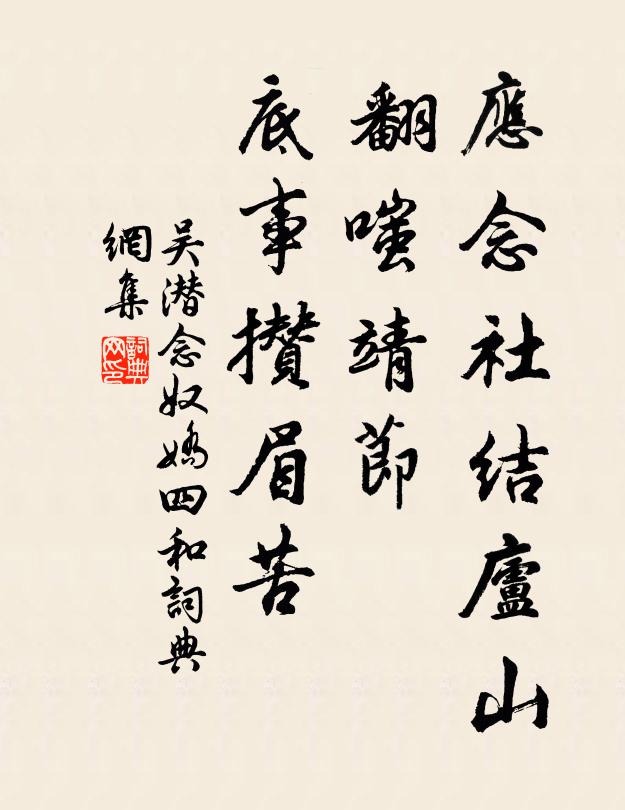 應念社結廬山
翻嗤靖節
底事攢眉苦
吴潛念奴嬌四和詞典
網集
詞典
网印